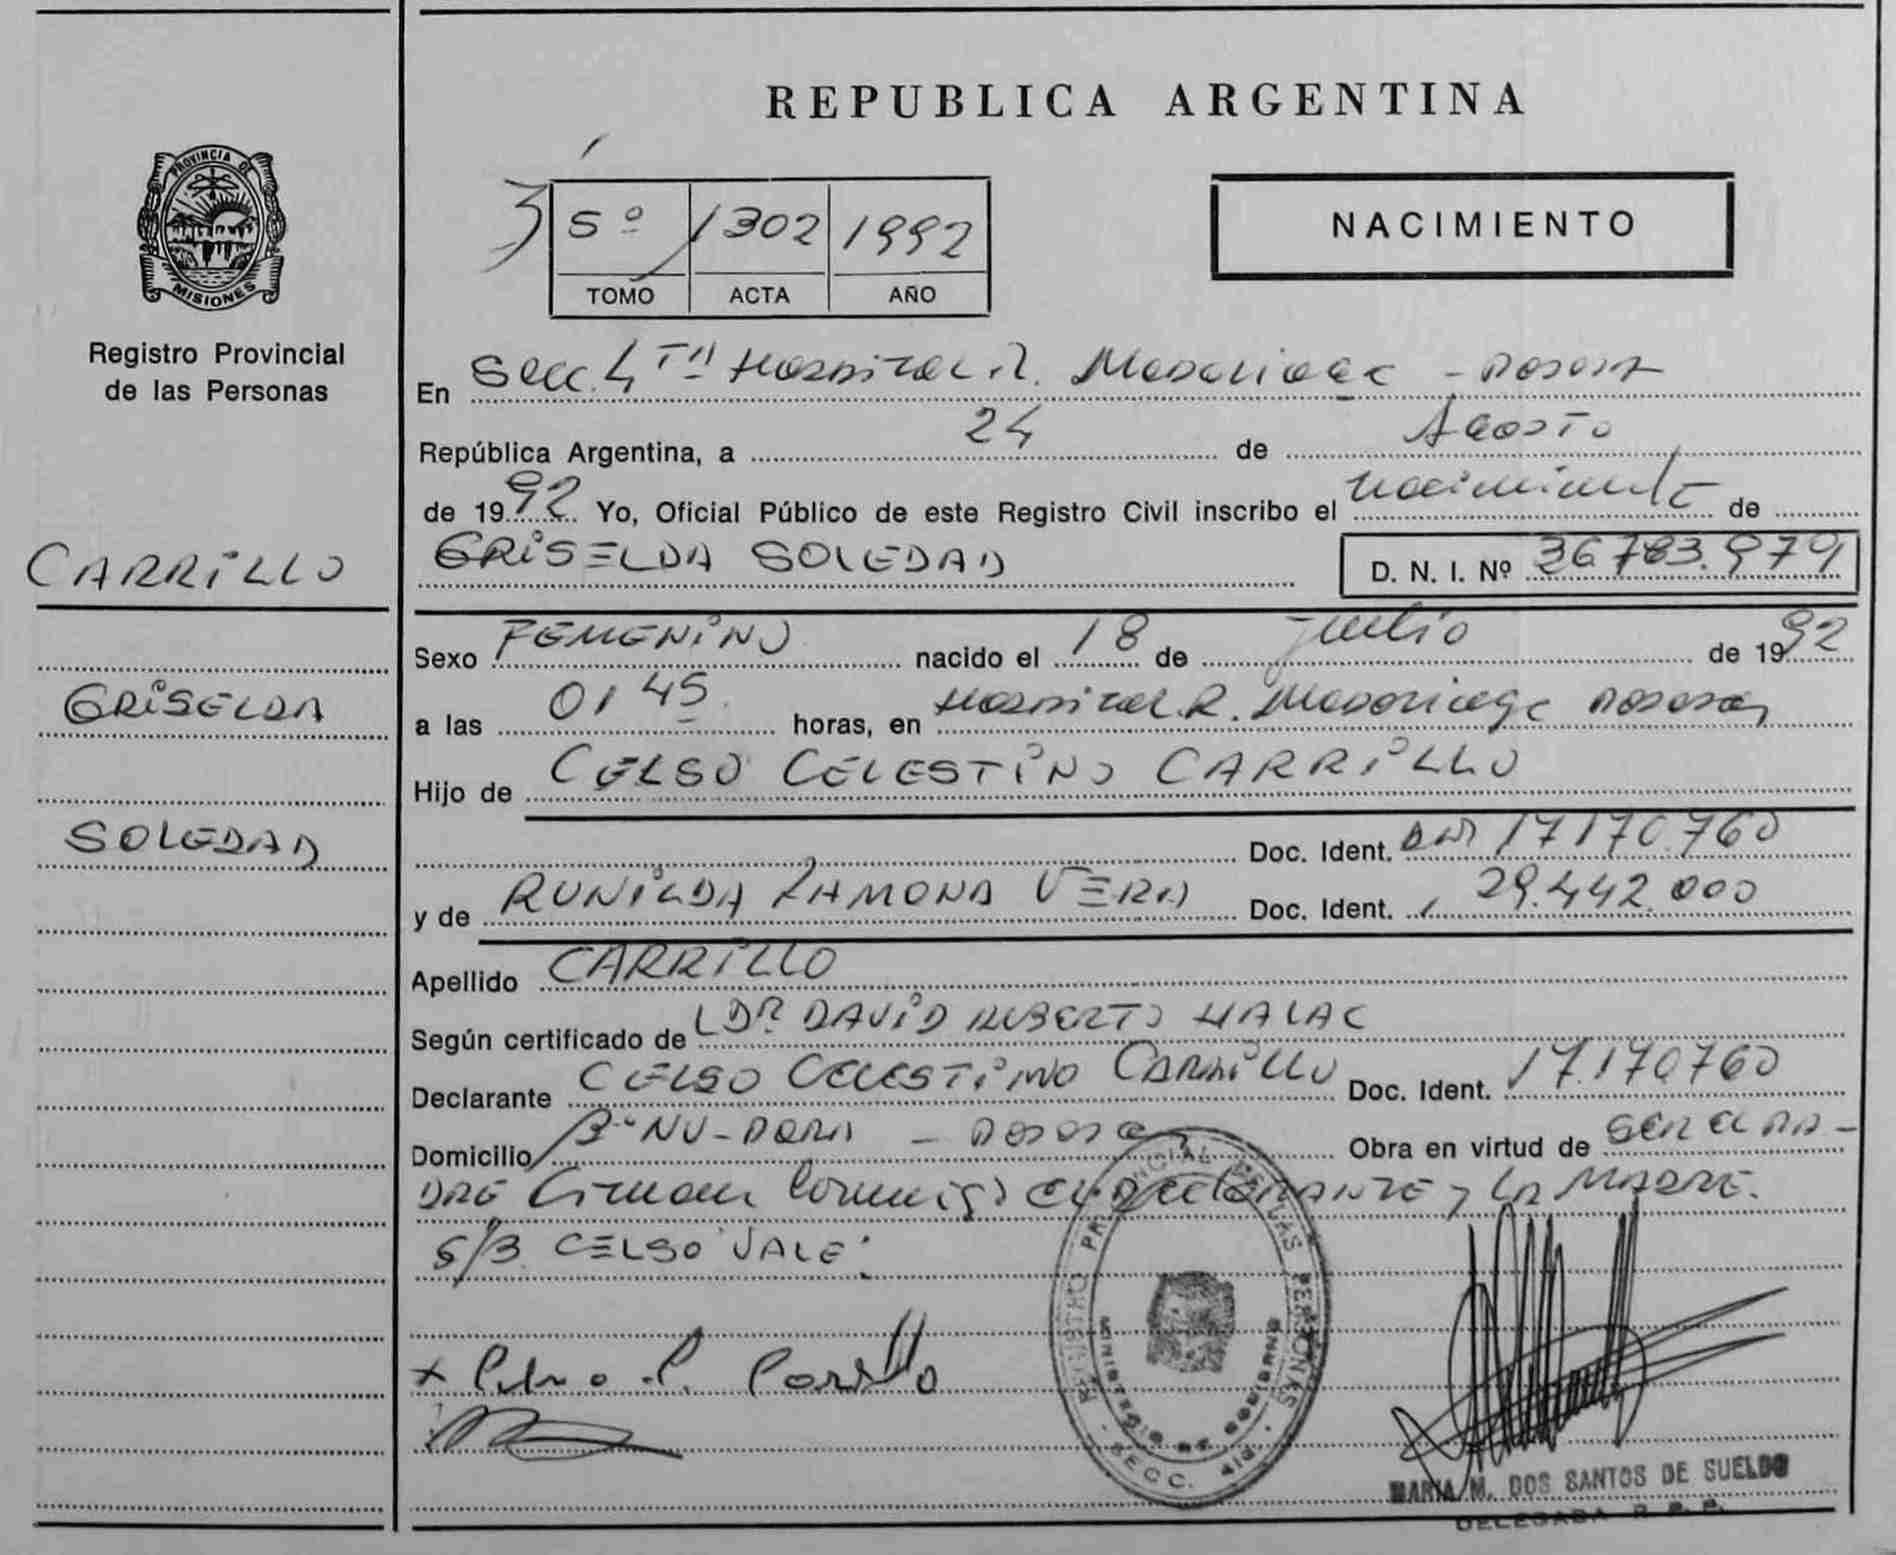 REPUBLICA ARGENTINA
PROVINCIA DE
MISIONES
Registro Provincial
de las Personas
5º 1302 1992
TOMO ACTA AÑO
NACIMIENTO
En Secc. 4TA Hospital R. Madariaga - Posadas
República Argentina, a 24 de Agosto
de 1992 Yo, Oficial Público de este Registro Civil inscribo el nacimiento de
CARRILLO
GRISELDA SOLEDAD D. N. I. Nº 36783.979
Sexo FEMENINO nacido el 18 de julio de 1992
GRISELDA
a las 01 45 horas, en Hospital R. Madariaga Posadas
Hijo de CELSO CELESTINO CARRILLO
SOLEDAD
Doc. Ident. DNI 17170.760
y de RUNILDA RAMONA VERA Doc. Ident. 29.442.000
Apellido CARRILLO
Según certificado de DR DAVID ALBERTO HALAC
Declarante CELSO CELESTINO CARRILLO Doc. Ident. 17.170760
Domicilio Bº NU-PORA - Obra en virtud de
DRE Firman conmigo el DECLARANTE y LA MADRE.
S/B CELSO VALE.
REGISTRO PROVINCIAL DE LAS PERSONAS
MINISTERIO DE GOBIERNO
SECC. 4ta
MARIA M. DOS SANTOS DE SUELDO
DELEGADA R. P. P.